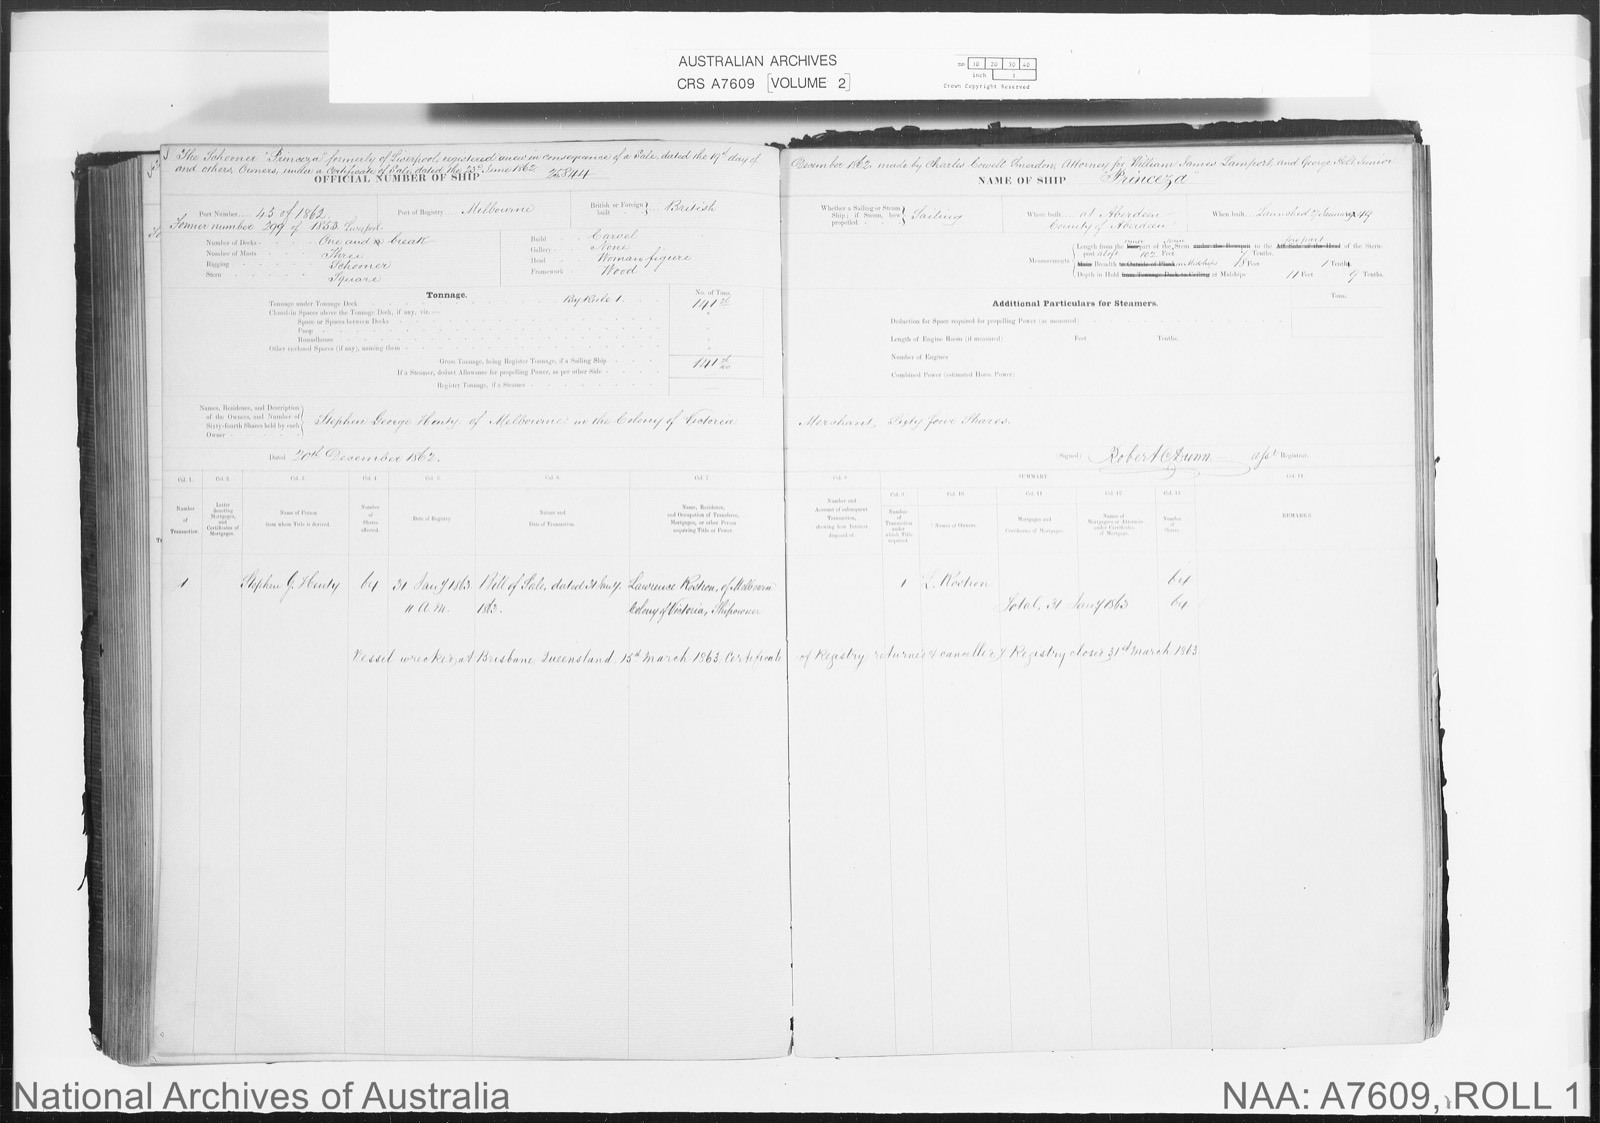 AUSTRALIAN ARCHIVES
CRS A7609 [VOLUME 2]
mm 10 20 30 40
inch 1
Crown Copyright Reserved
The Schooner "Princeza" formerly of Liverpool, registered anew in consequence of a Sale, dated the 19th day of December 1862 made by Charles Cowell Guerdon, Attorney for William James Lamport, and George Holt, Junior
and others, Owners, under a Certificate of Sale dated the 23d June 1862
OFFICIAL NUMBER OF SHIP 26844
NAME OF SHIP "Princeza"
Port Number 45 of 1862
Former number 299 of 1853 Liverpool
Port of Registry Melbourne
British or Foreign built British
Whether a Sailing or Steam Ship; if Steam, how propelled Sailing
Where built at Aberdeen County of Aberdeen
When built Launched 27 January 49
Number of Decks One and break
Number of Masts Three
Rigging Schooner
Stern Square
Build Carvel
Gallery None
Head Woman figure
Framework Wood
Measurements
Length from the part of the Stem under the Bowsprit to the fore part Aft side of the Head of the Stern-
post aloft 102 Feet 7 Tenths.
Main Breadth to Outside of Plank in Midships 18 Feet 1 Tenth
Depth in Hold from Tonnage Deck to Ceiling at Midships 11 Feet 9 Tenths.
Tonnage.
No. of Tons.
Tonnage under Tonnage Deck By Rule 1. 141
Closed-in Spaces above the Tonnage Deck, if any, viz.:—
Space or Spaces between Decks
Poop
Roundhouse
Other enclosed Spaces (if any), naming them
Gross Tonnage, being Register Tonnage, if a Sailing Ship 141
If a Steamer, deduct Allowance for propelling Power, as per other Side
Register Tonnage, if a Steamer
Additional Particulars for Steamers.
Tons.
Deduction for Space required for propelling Power (as measured)
Length of Engine Room (if measured) Feet Tenths.
Number of Engines
Combined Power (estimated Horse Power)
Names, Residence, and Description of the Owners, and Number of Sixty-fourth Shares held by each Owner
Stephen George Henty of Melbourne in the Colony of Victoria Merchant, Sixty four Shares.
Dated 20th December 1862.
(Signed) Robert C Dunn Asst Registrar.
Col. 1. Col. 2. Col. 3. Col. 4. Col. 5. Col. 6. Col. 7. Col. 8. SUMMARY Col. 14.
Col. 9. Col. 10. Col. 11. Col. 12. Col. 13.
Number of Transaction.
Letter denoting Mortgages, and Certificates of Mortgages.
Name of Person from whom Title is derived.
Number of Shares affected.
Date of Registry.
Nature and Date of Transaction.
Name, Residence, and Occupation of Transferee, Mortgagee, or other Person acquiring Title or Power.
Number and Account of subsequent Transaction, showing how Interest disposed of.
Number of Transaction under which Title acquired.
Names of Owners.
Mortgages and Certificates of Mortgages.
Names of Mortgagees or Attorneys under Certificates of Mortgage.
Number of Shares.
REMARKS.
1 Stephen G. Henty 64 31 Jany 1863 Bill of Sale, dated 31 Jany Lawrence Rostron, of Melbourne 1 L. Rostron 64
11 A.M. 1863. Colony of Victoria, Shipowner Total, 31 Jany 1863 64
Vessel wrecked at Brisbane, Queensland 15th March 1863. Certificate of Registry returned & cancelled & Registry closed 31st March 1863
National Archives of Australia
NAA: A7609, ROLL 1